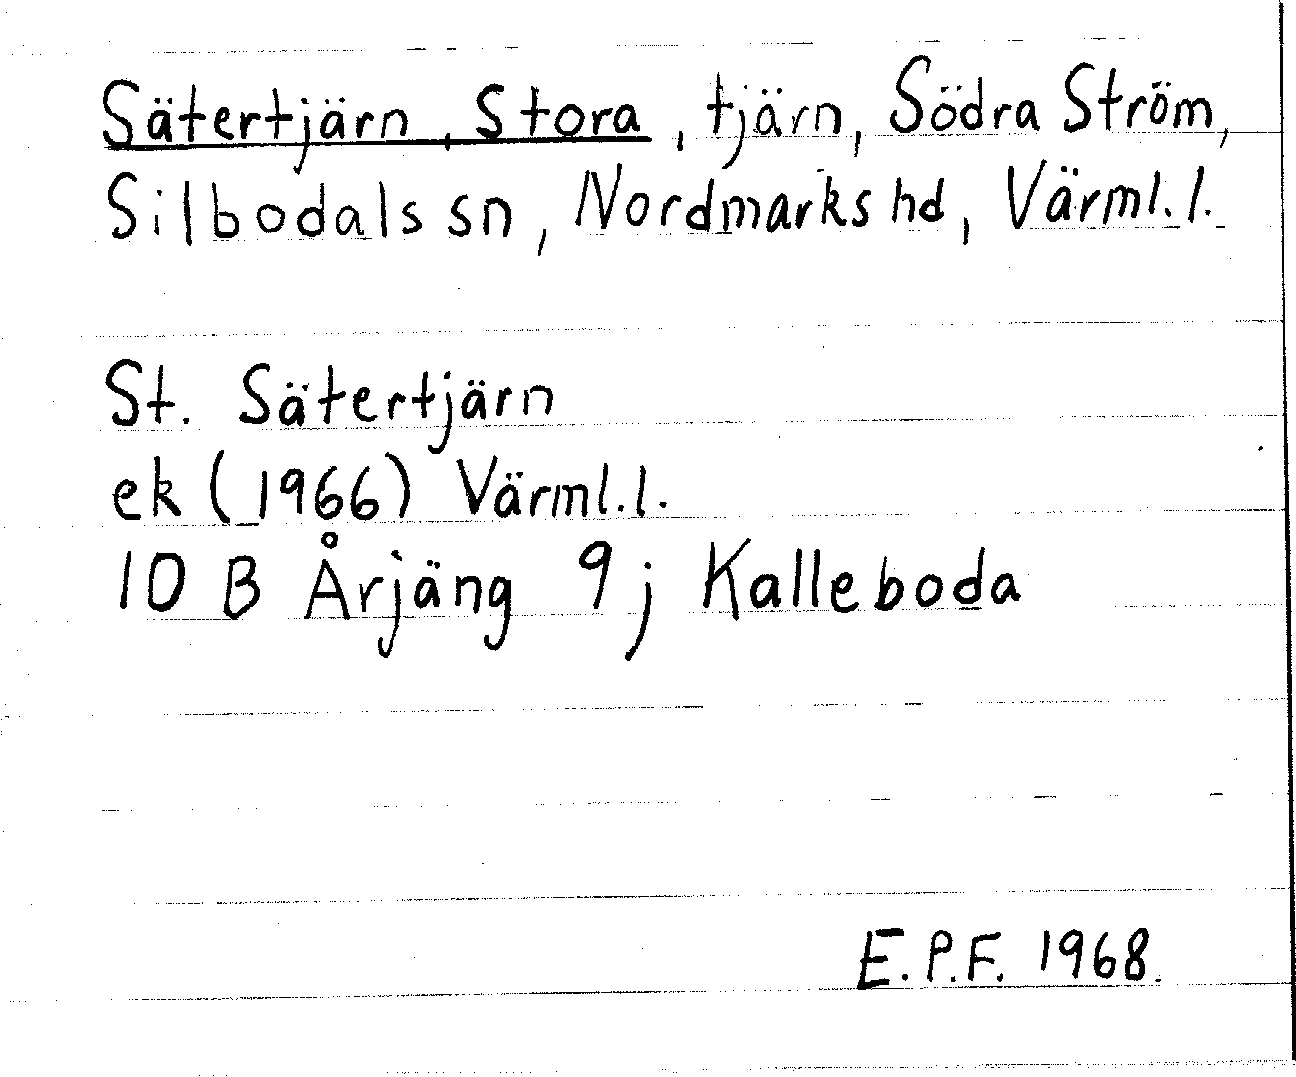 Sätertjärn, Stora, tjärn, Södra Ström,
Silbodals sn, Nordmarks hd, Värml.l.
St. Sätertjärn
ek (1966) Värml.l.
10 B Årjäng 9 j Kalleboda
E.P.F. 1968.